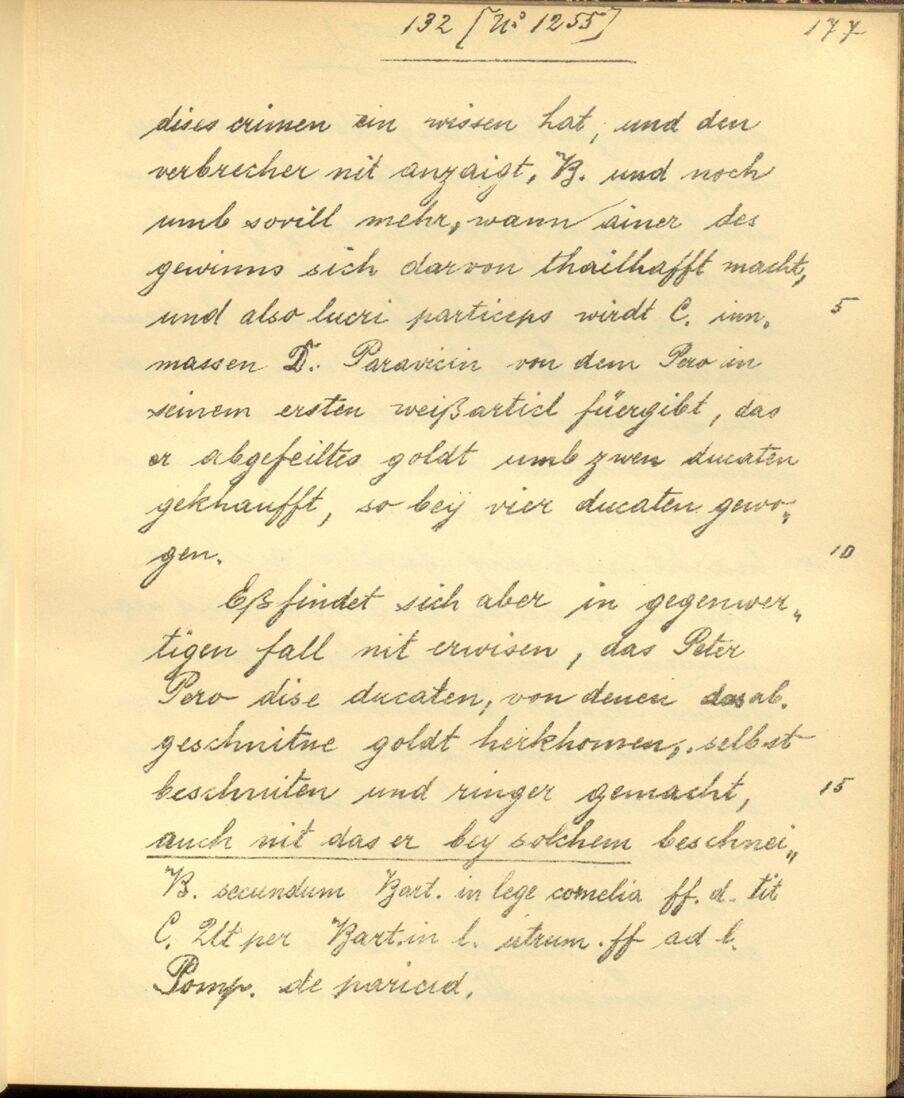 132 [No 1255]
177
dises crimen ein wissen hat, und den
verbrecher nit anzaigt, B. und noch
umb sovill mehr, wann ainer des
gewinns sich darvon thailhafft macht,
und also lucri particeps wirdt C. inn„ 5
massen D. Paravicin von dem Pero in
seinem ersten weißarticl füergibt, das
er abgefeiltes goldt umb zwen ducaten
gekhaufft, so beÿ vier ducaten gewo„
gen. 10
Eß findet sich aber in gegenwer„
tigen fall nit erwisen, das Peter
Pero dise ducaten, von denen das ab„
geschnitne goldt herkhomen, selbst
beschniten und ringer gemacht, 15
auch nit das er bey solchem beschnei„
B. secundum Bart. in lege cornelia ff. d. tit
C. Ut per Bart. in l. utrum. ff ad l.
Pomp. de paricid.